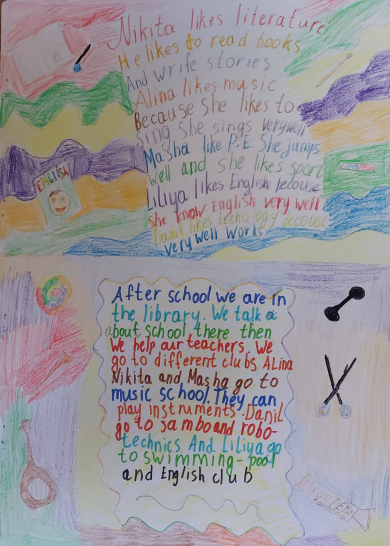 Nikita likes literature
He likes to read books
And write stories
Alina likes music
Because She likes to
sing she sings very well
Masha like P.E. She jamps
well and she likes sport
Liliya likes English becouse
she know English very well
Danil likes teenology becouse
very well works
ENGLISH
After school we are in
the library. We talk a
about school there then
We help our teachers. We
go to different clubs Alina
Nikita and Masha go to
music school. They can
play instruments. Danil
go to sambo and robo-
technics And Liliya go
to swimming-pool
and English club